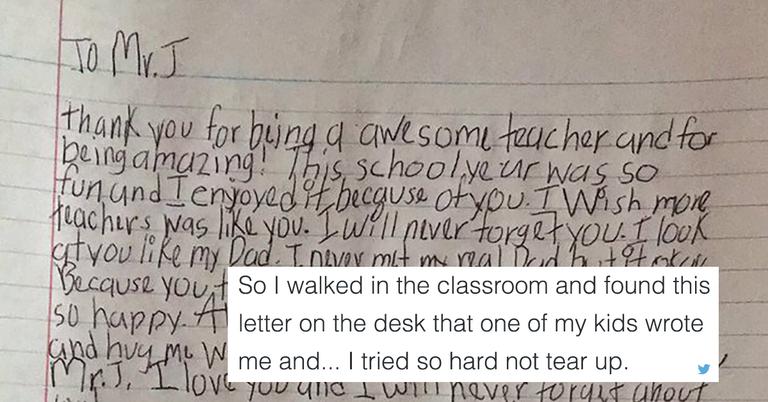 To Mr. J
thank you for being a awesome teacher and for
being amazing! This school year was so
fun and I enjoyed it because of you. I Wish more
teachers was like you. I will never forget you. I look
at you like my Dad. I never met my real Dad but it's okay
Because you
so happy.
and hug me w
Mr. J, I love you and I will never forget about
So I walked in the classroom and found this
letter on the desk that one of my kids wrote
me and... I tried so hard not tear up.